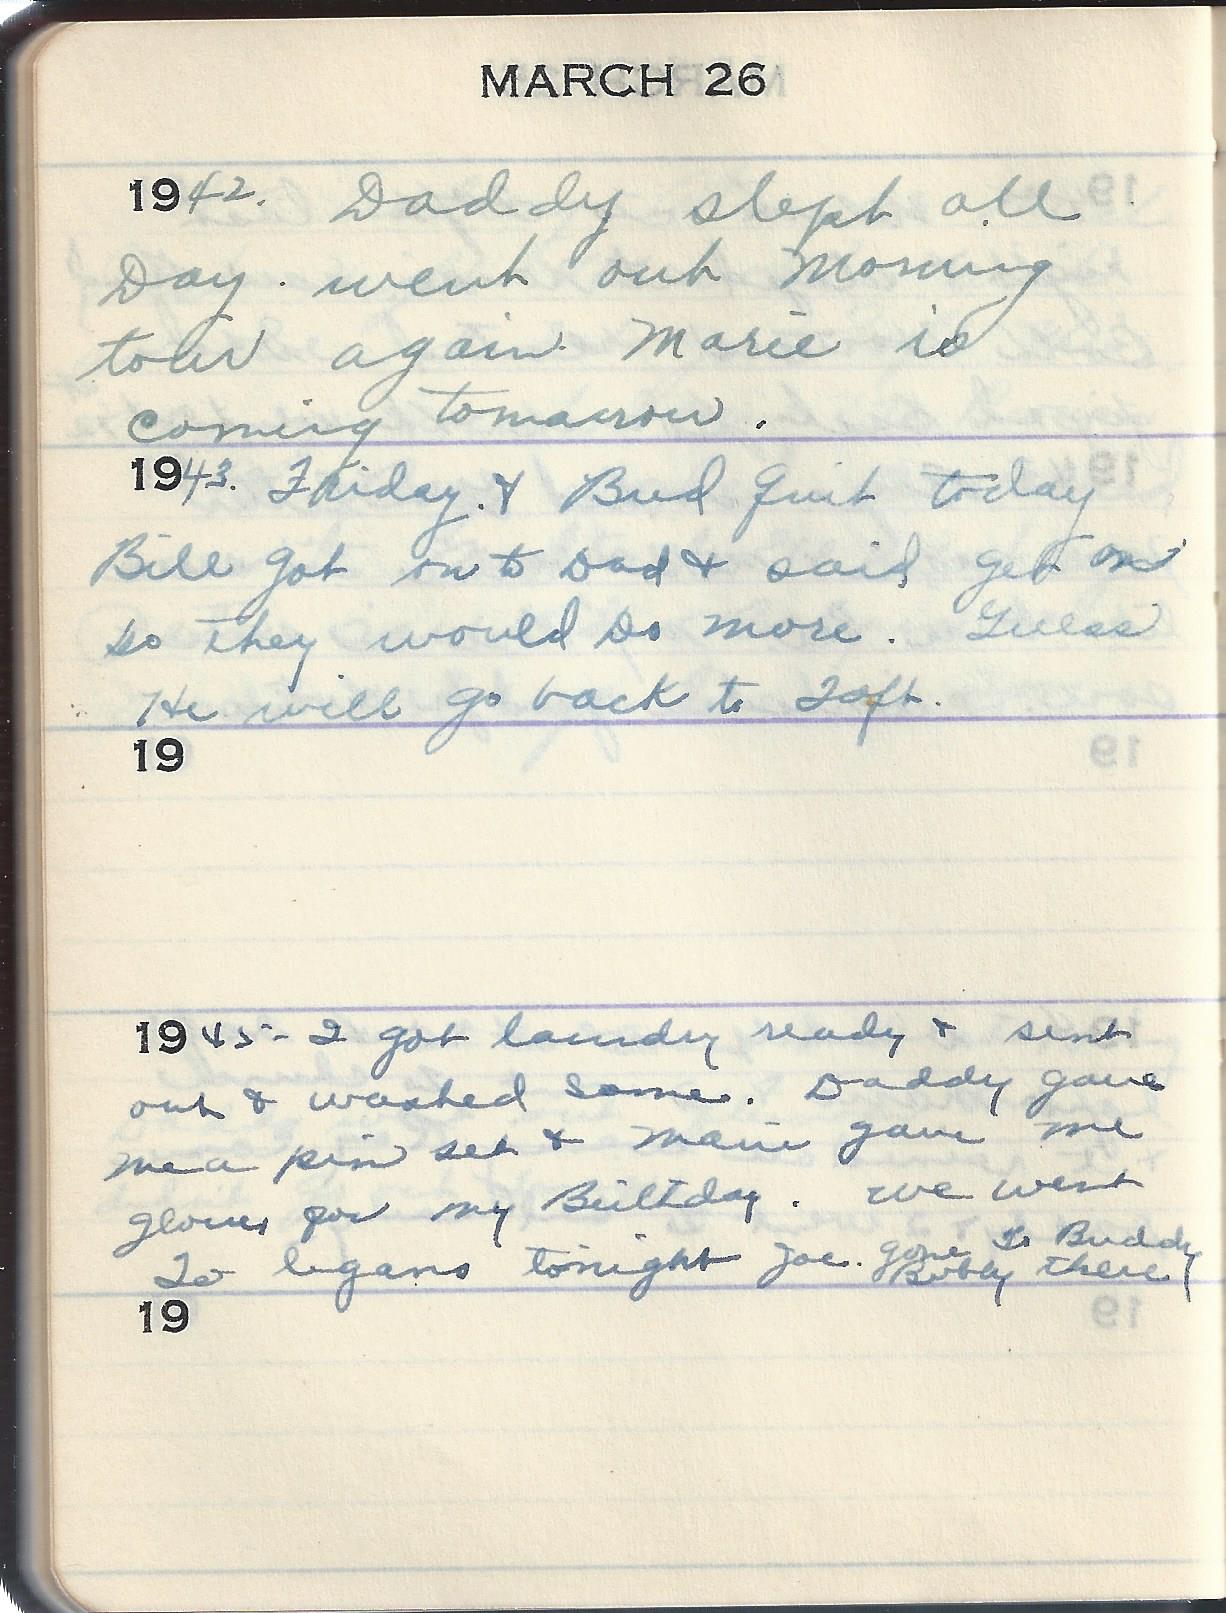 MARCH 26
1942. Daddy slept all
Day. went out Morning
tour again. Marie is
coming tomarrow.
1943. Friday. & Bud Quit today
Bill got on to Dad & said get on
so they would do more. Guess
He will go back to Taft.
19
1945- I got laundry ready & sent
out & washed some. Daddy gave
me a pin set & Marie gave me
gloves for my Birthday. we went
To logans tonight Joe. gone to Buddy
Bobby there
19